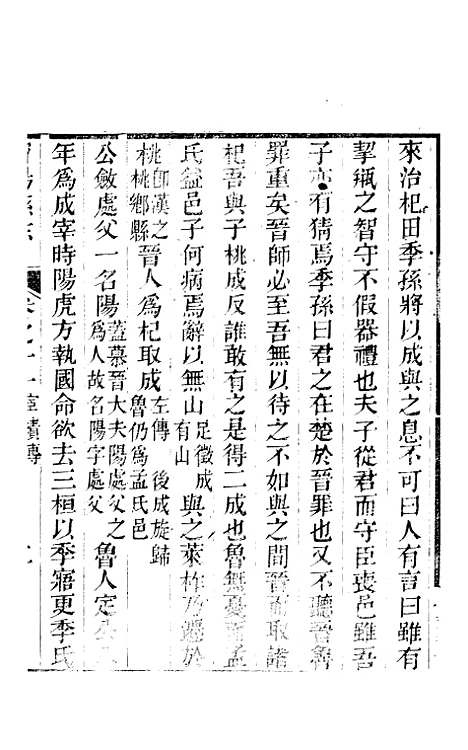 來治杞田季孫將以成與之息不可曰人有言曰雖有
挈缾之智守不假器禮也夫子從君而守臣喪邑雖吾
子亦有猜焉季孫曰君之在楚於晉罪也又不聽晉魯
罪重矣晉師必至吾無以待之不如與之間晉而取諸
杞吾與子桃成反誰敢有之是得二成也魯無憂而孟
氏益邑子何病焉辭以無山足徵成有山與之萊柞乃遷於
桃即漢之桃鄉縣晉人爲杞取成左傳 後成旋歸魯仍爲孟氏邑
公斂處父一名陽蓋慕晉大夫陽處父之爲人故名陽字處父魯人定公
年爲成宰時陽虎方執國命欲去三桓以季寤更季氏
陽縣志
卷之十一 續傳